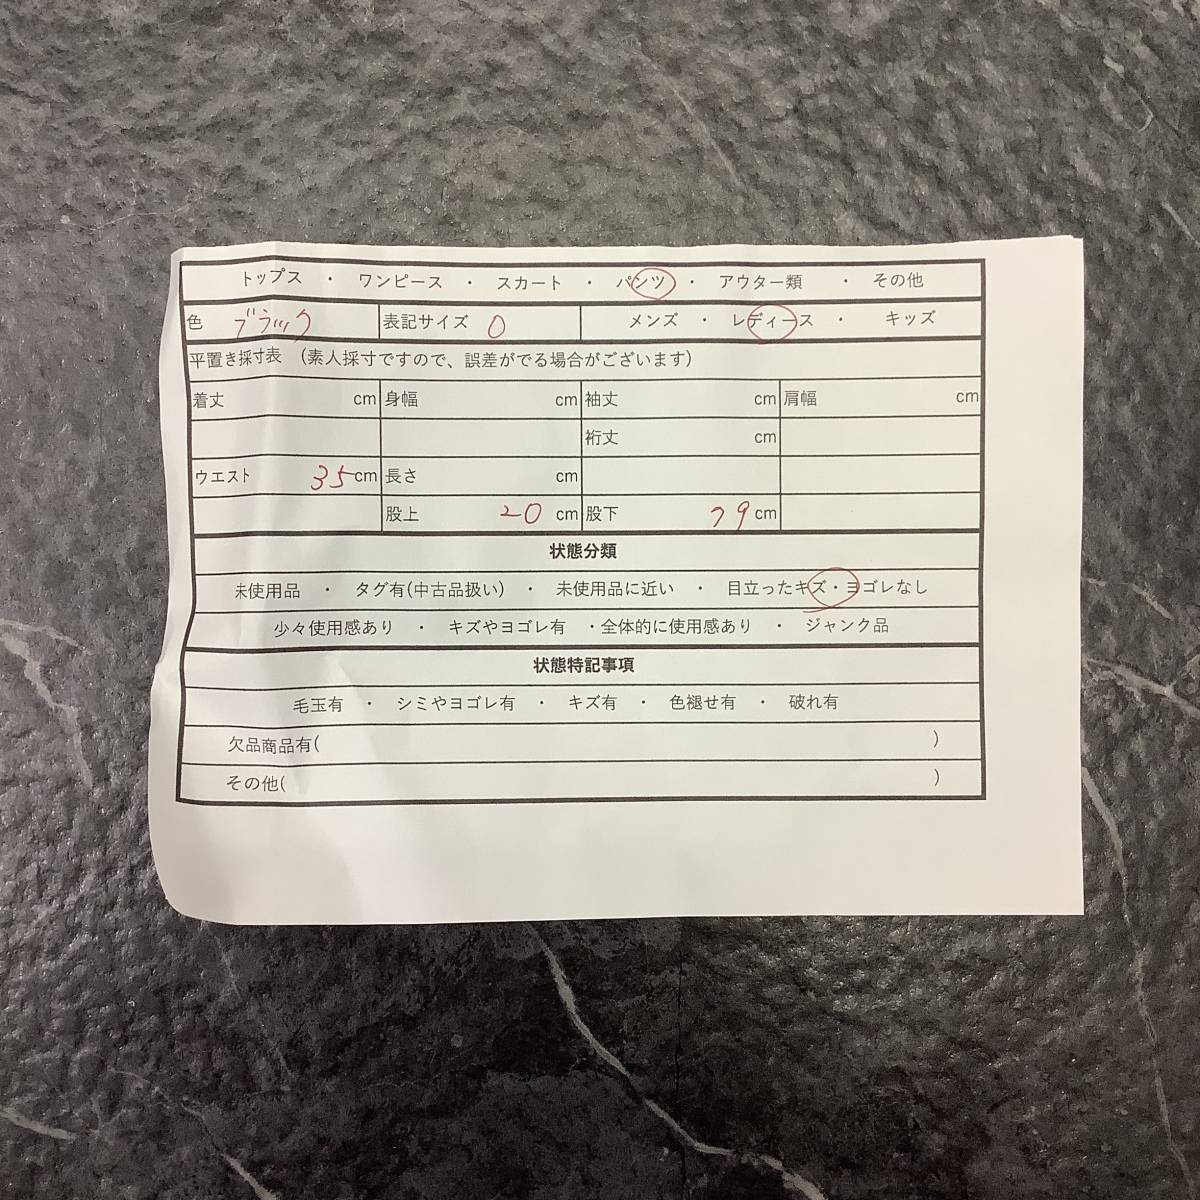 トップス ・ ワンピース ・ スカート ・ パンツ ・ アウター類 ・ その他
色 ブラック 表記サイズ 0 メンズ ・ レディース ・ キッズ
平置き採寸表 (素人採寸ですので、誤差がでる場合がございます)
着丈 cm 身幅 cm 袖丈 cm 肩幅 cm
裄丈 cm
ウエスト 35 cm 長さ cm
股上 20 cm 股下 79 cm
状態分類
未使用品 ・ タグ有(中古品扱い) ・ 未使用品に近い ・ 目立ったキズ・ヨゴレなし
少々使用感あり ・ キズやヨゴレ有 ・全体的に使用感あり ・ ジャンク品
状態特記事項
毛玉有 ・ シミやヨゴレ有 ・ キズ有 ・ 色褪せ有 ・ 破れ有
欠品商品有( )
その他( )